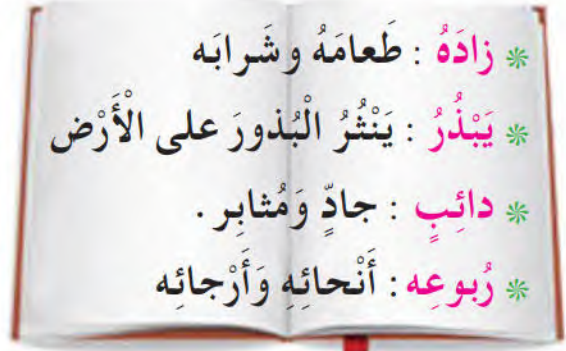 زادَهُ : طَعامَهُ وشَرابَه
يَبْذُرُ : يَنْثُرُ الْبُذورَ على الْأَرْض
دائِبٍ : جادٍّ وَمُثابِر .
رُبوعِه : أَنْحائِهِ وَأَرْجائِه